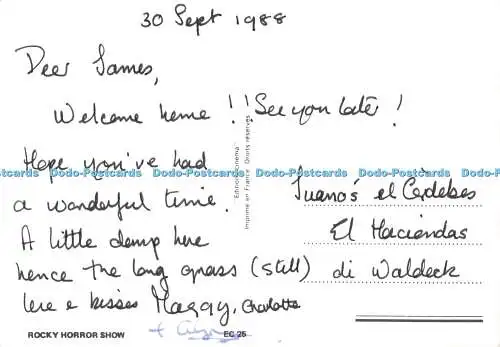 30 Sept 1988
Dear James,
Welcome home!! See you later!
Hope you've had
a wonderful time!
A little damp here
hence the long grass (still)
love & kisses Maggy, Charlotte
+
Juano's el Cordebes
El Haciendas
di Waldeck
Editions "cinema"
Imprimé en France Droits réservés
Dodo-Postcards Dodo-Postcards Dodo-Postcards Dodo-Postcards Dodo-Postcards
ROCKY HORROR SHOW
EC 25